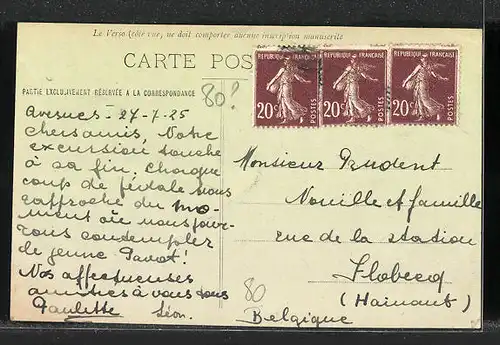 Le Verso (côté vue) ne doit comporter aucune inscription manuscrite
CARTE POS
REPUBLIQUE FRANÇAISE
20c POSTES
REPUBLIQUE FRANÇAISE
20c POSTES
REPUBLIQUE FRANÇAISE
20c POSTES
PARTIE EXCLUSIVEMENT RÉSERVÉE A LA CORRESPONDANCE
80?
Avesnes - 27-7-25
Chers amis, Notre
excursion touche
à sa fin. Chaque
coup de pédale nous
rapproche du mo-
ment où nous pour-
rons contempler
le jeune
Nos affectueuses
amitiés à vous tous
Paulette Léon.
Monsieur Prudent
Nouille et famille
rue de la station
Flobecq
(Hainaut)
80
Belgique